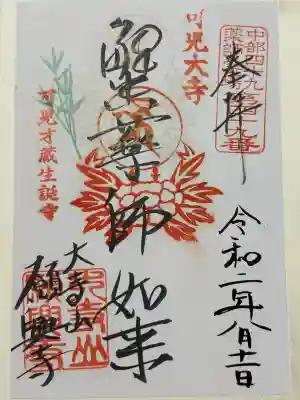 中部四十九薬師
第十九番
奉拝
令和二年八月十一日
可児大寺
蟹薬師如来
可児才蔵生誕寺
大寺山
願興寺